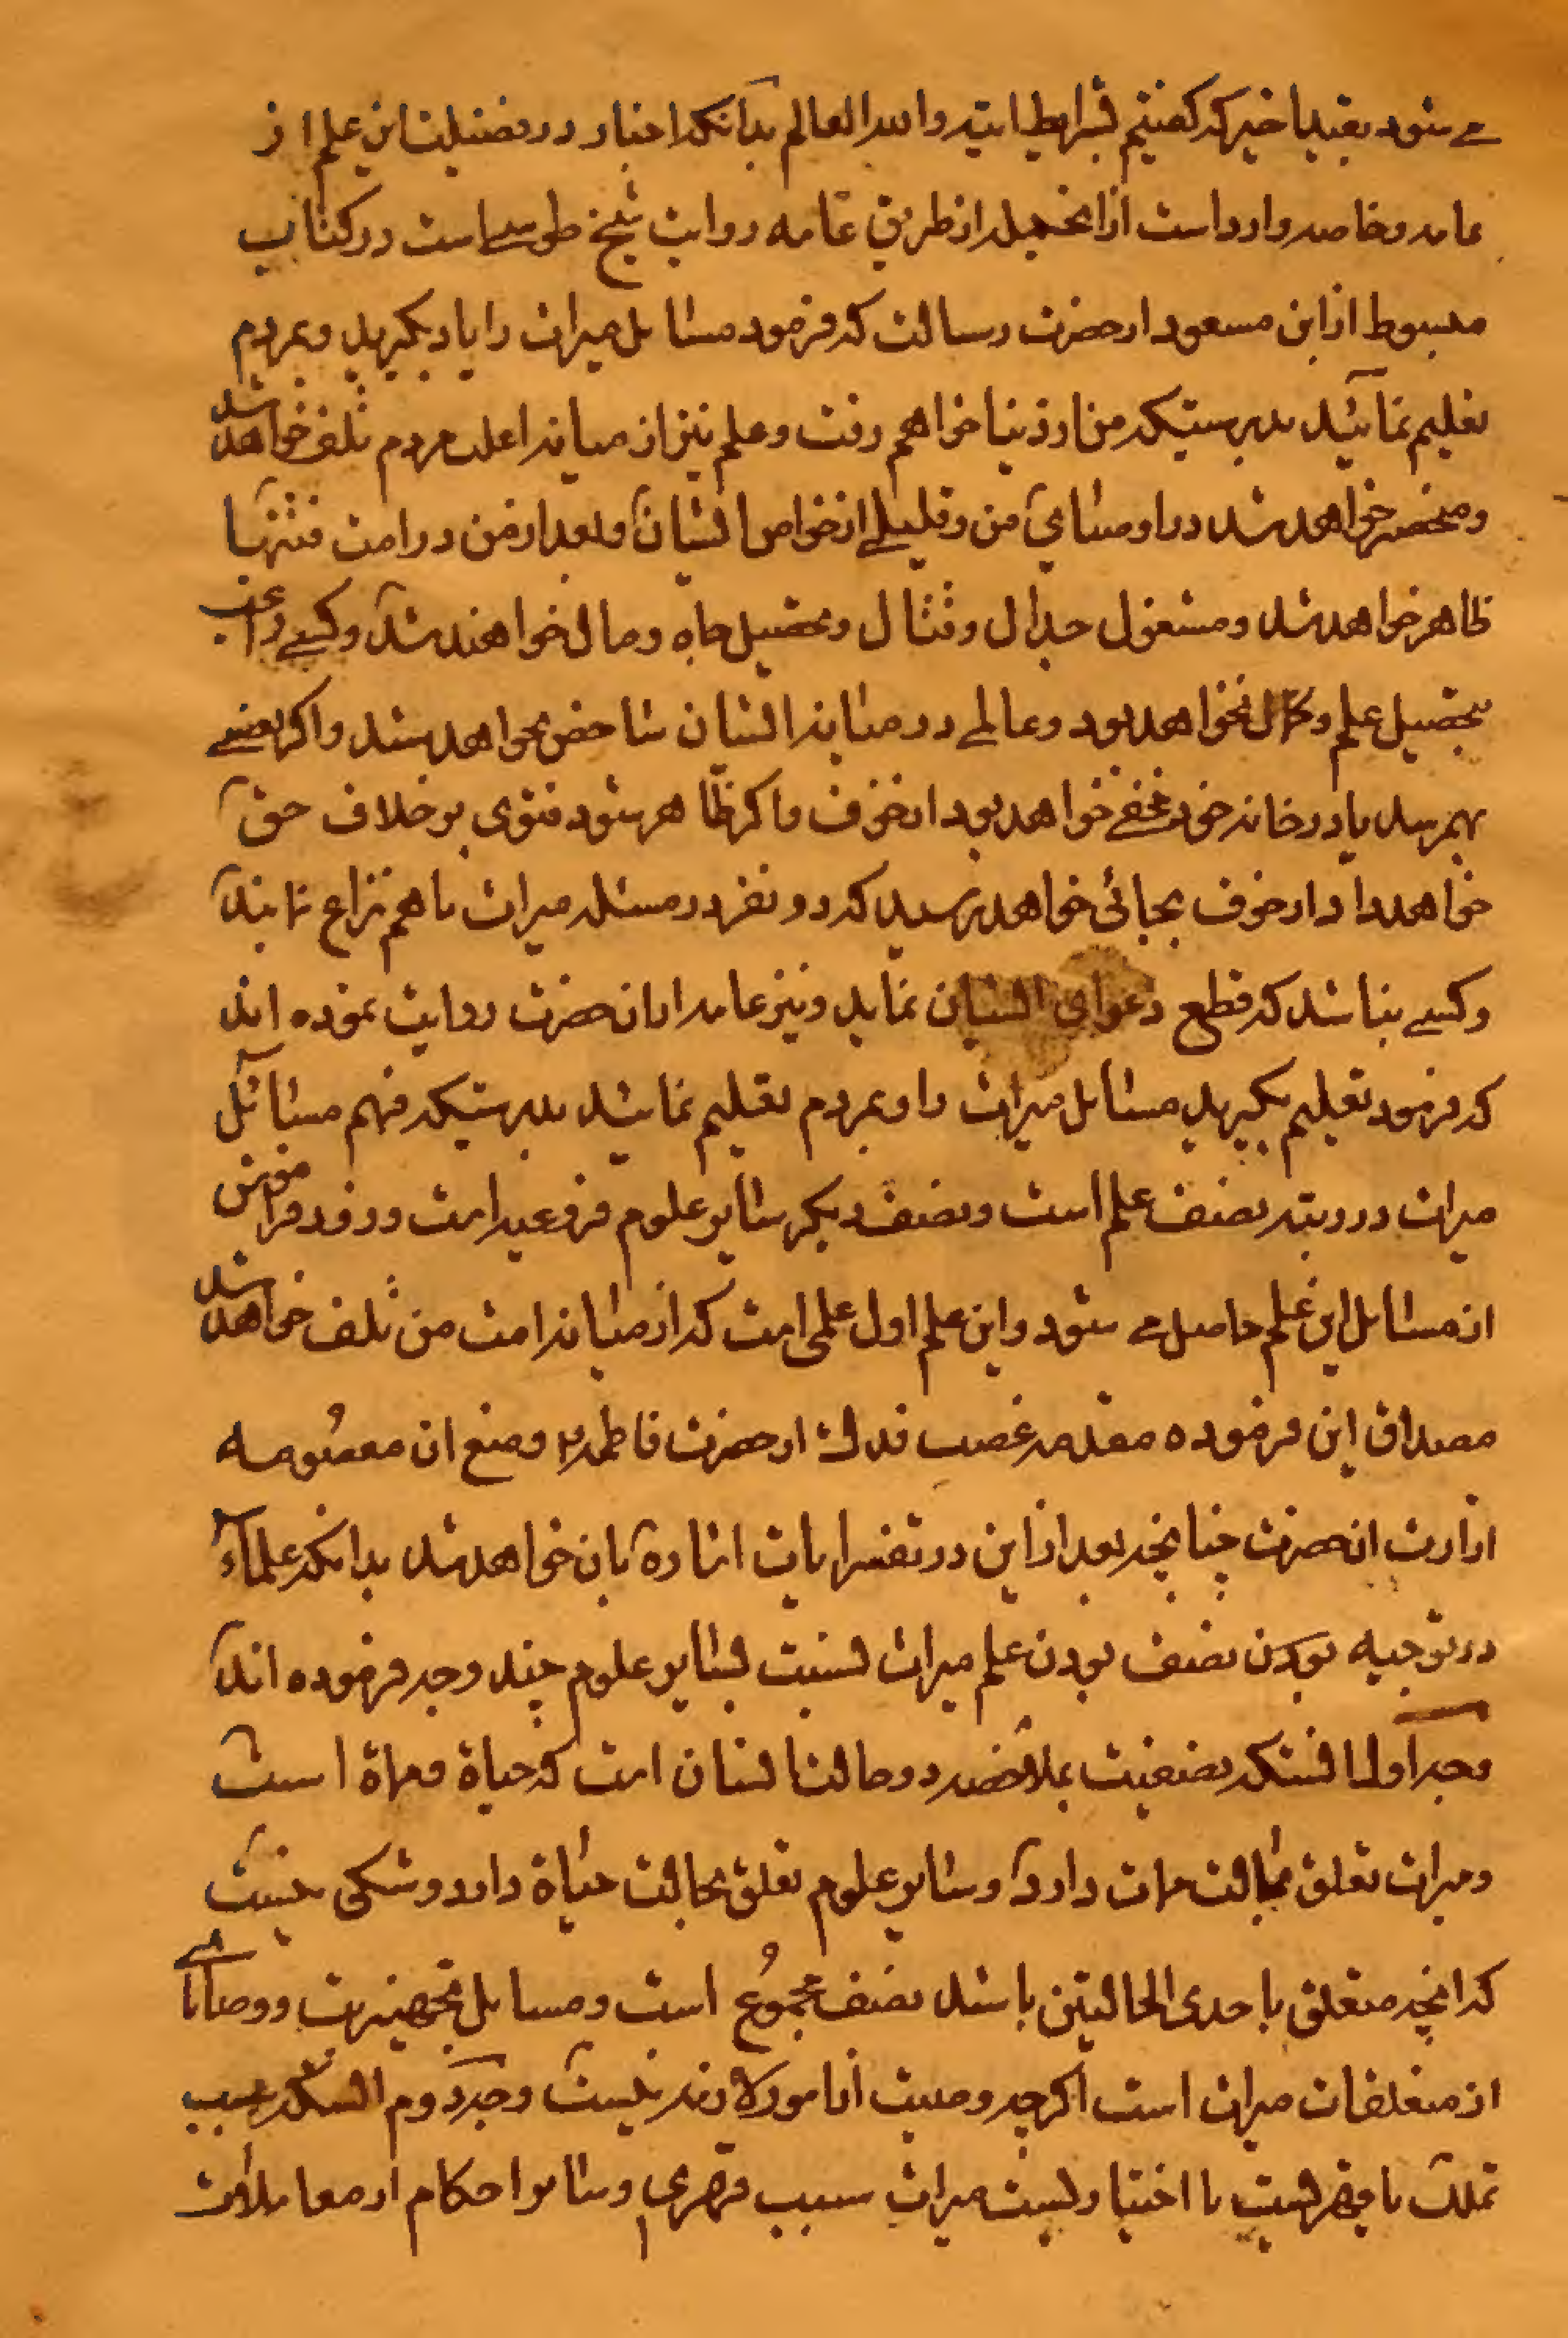 می شود بقید اخیر که گفتیم شرایط ایته والله العالم بدانکه اخبار در فضیلت این علم از
عامه وخاصه وارد است ازانجمله از طریق عامه روایت شیخ طوسی است در کتاب
مبسوط از ابن مسعود از حضرت رسالت که فرمود مسائل میراث را یاد بگیرید وبمردم
تعلیم نمائید بدرستیکه من از دنیا خواهم رفت وعلم نیز از میانه اغلب مردم تلف خواهد شد
ومنحصر خواهد شد در اوصیای من وقلیلی از خواص ایشان وبعد از من در امت فتنها
ظاهر خواهد شد ومشغول جدال وقتال وتحصیل جاه ومال خواهند شد وکسی راغب
بتحصیل علم وکمال نخواهد بود وعالمی در میانه ایشان شاخص نخواهد شد واگر بعضی
بهم رسد یا در خانه خود مخفی خواهد بود از خوف واگر ظاهر شود فتوی بر خلاف حق
خواهد داد از خوف بجائی خواهد رسید که دو نفر در مسئله میراث با هم نزاع نمایند
وکسی نباشد که قطع دعوای ایشان نماید ونیز عامه از ان حضرت روایت نموده اند
که فرمود تعلیم بگیرید مسائل میراث را وبمردم تعلیم نمائید بدرستیکه فهم مسائل
میراث در رتبه نصف علم است ونصف دیگر سایر علوم فروعیه است وزود فراموش
از مسائل این علم حاصل می شود واین علم اول علمی است که از میانه امت من تلف خواهد شد
مصداق این فرموده مقدمه غصب فدک از حضرت فاطمه ومنع ان معصومه
از ارث انحضرت چنانچه بعد از این در تفسیر ایات اشاره بان خواهد شد بدانکه علماء
در توجیه بودن نصف بودن علم میراث نسبت بسایر علوم چند وجه فرموده اند
وجه اول انستکه نصفیت بملاحضه دو حالت انسان است که حیاة ومماة است
ومیراث تعلق بحالت ممات دارد وسایر علوم تعلق بحالت حیاة دارد وشکی نیست
که انچه متعلق باحدی الحالتین باشد نصف مجموع است ومسایل تجهیز میت ووصایا
از متعلقات میراث است اگرچه وصیت از امور لازمه نیست وجه دوم انستکه سبب
تملک یا قهریست یا اختیاریست میراث سبب قهری وسایر احکام از معاملات